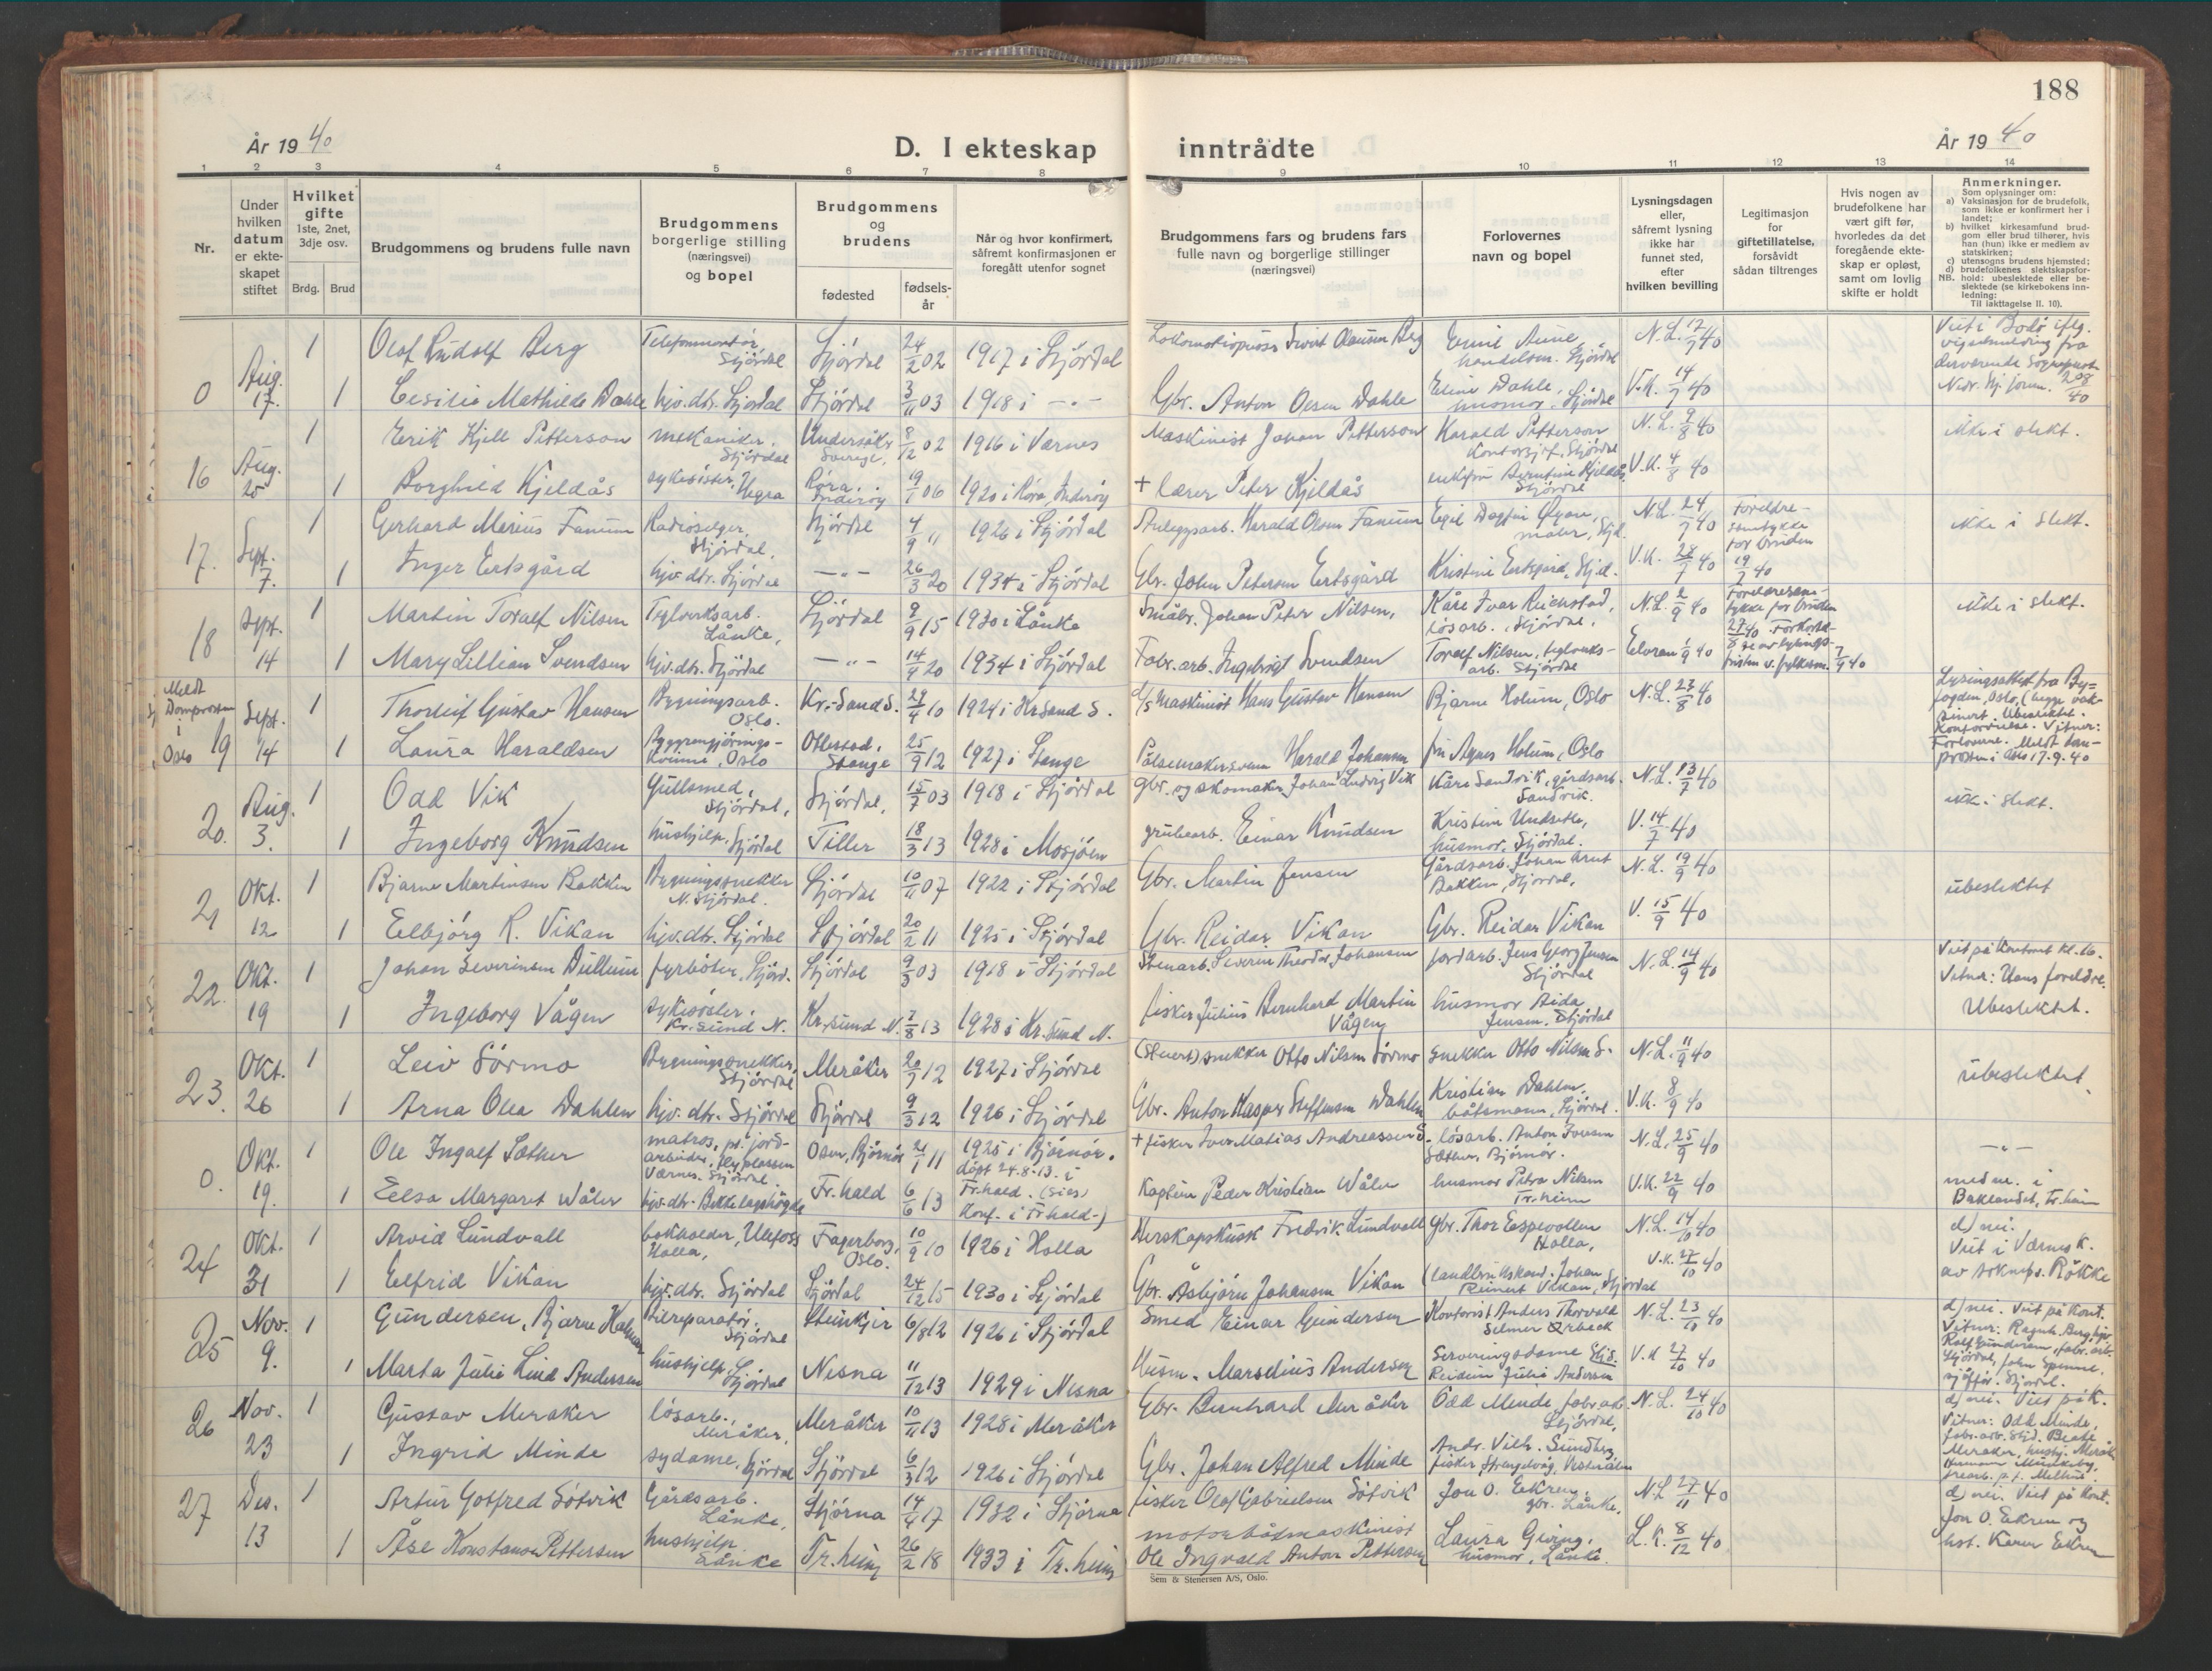 188
År 1940
D. I ekteskap inntrådte
År 1940
1 2 3 4 5 6 7 8 9 10 11 12 13 14
Nr.
Under hvilken datum er ekteskapet stiftet
Hvilket gifte
1ste, 2net, 3dje osv.
Brdg. Brud
Brudgommens og brudens fulle navn
Brudgommens borgerlige stilling (næringsvei) og bopel
Brudgommens og brudens
fødested
fødsels-år
Når og hvor konfirmert, såfremt konfirmasjonen er foregått utenfor sognet
Brudgommens fars og brudens fars fulle navn og borgerlige stillinger (næringsvei)
Forlovernes navn og bopel
Lysningsdagen eller, såfremt lysning ikke har funnet sted, efter hvilken bevilling
Legitimasjon for giftetillatelse, forsåvidt sådan tiltrenges
Hvis nogen av brudefolkene har vært gift før, hvorledes da det foregående ekteskap er opløst, samt om lovlig skifte er holdt
Anmerkninger.
Som oplysninger om:
a) Vaksinasjon for de brudefolk, som ikke er konfirmert her i landet;
b) hvilket kirkesamfund brudgom eller brud tilhører, hvis han (hun) ikke er medlem av statskirken;
c) utensogns brudens hjemsted;
d) brudefolkenes slektskapsforhold: ubeslektede eller beslektede (se kirkebokens innledning:
NB.
Til iakttagelse II. 10).
0 Aug. 17. 1 Olaf Rudolf Berg Telefonmontør, Stjørdal Stjørdal 24/2 02 1917 i Stjørdal Emil Aune, handelsm. Stjørdal N.L. 17/7 40
1 Cesilie Mathilde Dahle hjv. dtr. Stjørdal Stjørdal 3/11 03 1918 i -"- Gbr. Anton Olsen Dahle Eline Dahle, husmor, Stjørdal V.K. 14/7 40
16 Aug. 25 1 Erik Hjell Petterson mekaniker, Stjørdal Undersåker Sverige, 8/12 02 1916 i Værnes Maskinist Johan Petterson Harald Petterson Kontorsjef, Stjørdal N.L. 9/8 40 ikke i slekt.
1 Borghild Kjeldås sykesøster, Hegra Røra, Inderøy 19/1 06 1920 i Røra, Inderøy + lærer Peter Kjeldås enkefru Berntine Kjeldås, Stjørdal V.K. 4/8 40
17. Sept. 7. 1 Gerhard Marius Fanum Radioselger, Stjørdal, Stjørdal 4/9 11 1926 i Stjørdal Anleggsarb. Harald Olsen Fanum Egil Dagfin Øyan, maler, Stjd. N.L. 24/7 40 Foreldre-samtykke for bruden 19/7 40 ikke i slekt.
1 Inger Ertsgård hjv. dtr. Stjørdal -"- 26/3 20 1934 i Stjørdal Gbr. John Petersen Ertsgård Kristine Ertsgård, Stjd. V.K. 28/7 40
18 Sept. 14 1 Martin Toralf Nilsen Teglverksarb. Lånke, Stjørdal 9/9 15 1930 i Lånke Småbr. Johan Peter Nilsen, Kåre Ivar Reichstad, løsarb., Stjørdal, N.L. 2/9 40 Foreldresam-tykke for bruden 27/8 40. ikke i slekt.
1 Mary Lillian Svendsen hjv. dtr. Stjørdal -"- 14/4 20 1934 i Stjørdal Fabr. arb. Ingebrigt Svendsen Toralf Nilsen, teglverks-arb. Stjørdal Elvran 1/9 40
Meldt Domprosten i Oslo
19 Sept. 14 1 Thorleif Gustav Hansen Bygningsarb. Oslo. Kr.-Sand S. 29/4 10 1924 i Kr Sand S. d/s Maskinist Hans Gustav Hansen Bjarne Holum, Oslo N.L. 23/8 40 Lysingsattest fra By-fogden, Oslo, (begge vak-sinert. Ubeslektet. Vitner: Forloverne. Meldt Dom-prosten i Oslo 17.9.40
1 Laura Haraldsen Byggrengjørings-kvinne, Oslo Ottestad, Stange 25/9 12 1927 i Stange Pølsemakersvenn Harald Johansen fru Agnes Holum, Oslo
20. Aug. 3. 1 Odd Vik Gullsmed, Stjørdal, Stjørdal, 15/7 03 1918 i Stjørdal Gbr. og skomaker Johan Ludvig Vik Kåre Sandvik, gårdsarb. Sandvik. N.L. 13/7 40 ikke i slekt.
1 Ingeborg Knudsen hushjelp, Stjørdal Tiller 18/3 13 1928 i Mosjøen grubearb. Einar Knudsen Kristine Undseth, husmor, Stjørdal. V. 14/7 40
21 Okt. 12 1 Bjarne Martinsen Bakken Bygningssnekker N. Stjørdal. Stjørdal 10/11 07 1922 i Stjørdal Gbr. Martin Jensen Gårdsarb. Johan Arnt Bakken, Stjørdal, N.L. 19/9 40 ubeslektet
1 Eelbjörg R. Vikan hjv. dtr. Stjørdal Stjørdal 20/2 11 1925 i Stjørdal Gbr. Reidar Vikan Gbr. Reidar Vikan V. 15/9 40
22. Okt. 19 1 Johan Severinsen Dullum fyrbøter, Stjørd. Stjørdal 9/3 03 1918 i Stjørdal Stenarb. Severin Theodor Johansen jordarb. Jens Georg Jensen Stjørdal N.L. 14/9 40 Viet på Kontoret kl. 16. Vitner: Hans foreldre. Ubeslektet.
1 Ingeborg Vågen sykesøster, Kr.sund N. Kr.sund N. 7/8 13 1928 i Kr.sund N. fisker Julius Bernhard Martin Vågen husmor Aida Jensen. Stjørdal
23. Okt. 26 1 Leiv Sörmo Bygningssnekker, Stjørdal Meråker 20/7 12 1927 i Stjørdal snekker Otto Nilsen Sörmo snekker Otto Nilsen S. N.L. 11/9 40 ubeslektet
1 Arna Olea Dahlen hjv. dtr. Stjørdal Stjørdal 9/3 12 1926 i Stjørdal Gbr. Anton Kasper Steffensen Dahlen Kristian Dahlen, båtsmann, Stjørdal. V.K. 8/9 40
0. Okt. 19. 1 Ole Ingolf Sæther matros, p.t. jord-arbeider, flyplassen Værnes. Stjørdal. Osen, Bjørnør 21/1 11 1925 i Bjørnør. + fisker Iver Matias Andreassen S. løsarb. Anton Iversen Sæther, Bjørnør. N.L. 25/9 40 -"-
1 Eelsa Margaret Wåler hjv. dtr. Bekkelagshøgda Fr.hald 6/6 13 døpt 24.8.13. i Fr.hald. Konf. i Fr.hald.) Kaptein Peder Kristian Wåler husmor Petra Nilsen Tr.heim V.K. 22/9 40 medne. i Baklandet, Tr.heim
24 Okt. 31 1 Arvid Lundvall bokholder, Ulefoss Holla, Fagerborg, Oslo. 10/9 10 1926 i Holla Herskapskusk Fredrik Lundvall gbr. Thor Espevollen Holla, N.L. 14/10 40 d) nei. Viet i Værnes K. av sokneprs. Røkke
1 Eelfrid Vikan hjv. dtr. Stjørdal Stjørdal 24/12 15 1930 i Stjørdal Gbr. Åsbjørn Johansen Vikan (landbrukskand. Johan Reinert Vikan, Stjørdal V.K. 27/10 40
25 Nov. 9. 1 Gundersen, Bjarne Halvar Bilreparatør, Stjørdal Steinkjer 6/8 12 1926 i Stjørdal Smed Einar Gundersen Kontorist Anders Thorvald Selmer Ørbeck N.L. 23/10 40 d) nei. Viet på Kont. Vitner: Ragnh. Berg, hjv. Rolf Gundersen, fabr. arb. Stjørdal, John sjåfør. Stjørdal.
1 Marta Julie Lind Andersen hushjelp, Stjørdal Nesna 11/12 13 1929 i Nesna Husm. Marselius Andersen Serveringsdame Reidun Julie Andersen V.K 27/10 40
26 Nov. 23 1 Gustav Meraker løsarb., Meråker, Meråker 10/11 13 1928 i Meråker Gbr. Bernhard Meråker Odd Minde, fabr. arb. Stjørdal, N.L. 24/10 40 d) nei. Viet på K. Vitner: Odd Minde, fabr. arb. Stjd. Beate Meraker, hushj. Meråk
1 Ingrid Minde sydame, Stjørdal Stjørdal 6/3 12 1926 i Stjørdal Gbr. Johan Alfred Minde Andr. Vilh. Sundberg fisker, Strengelvåg, Vesterålen
27 Des. 13 1 Artur Gotfred Sötvik Gårdsarb. Lånke, Stjørna 14/4 17 1932 i Stjørna fisker Olaf Gabrielsen Sötvik Jon O. Ekren, gbr. Lånke, N.L 27/11 40 d) nei. Viet på Kont. Jon O. Ekren og hst. Karen Ekren
1 Åse Konstanse Pettersen hushjelp Lånke Tr.heim 26/2 18 1933 i Tr.heim motorbåtmaskinist Ole Ingvald Anton Pettersen Laura Geving, husmor, Lånke. L.K. 8/12 40
Sem & Stenersen A/S, Oslo.